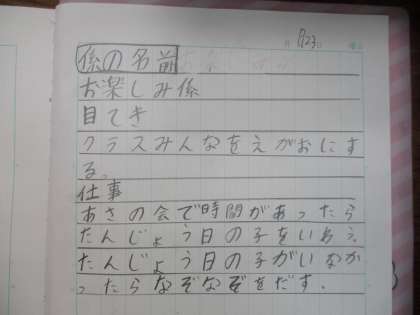 9/23
係の名前
お楽しみ係
目てき
クラスみんなをえがおにす
る。
仕事
あさの会で時間があったら
たんじょう日の子をいわう。
たんじょう日の子がいなか
ったらなぞなぞをだす。